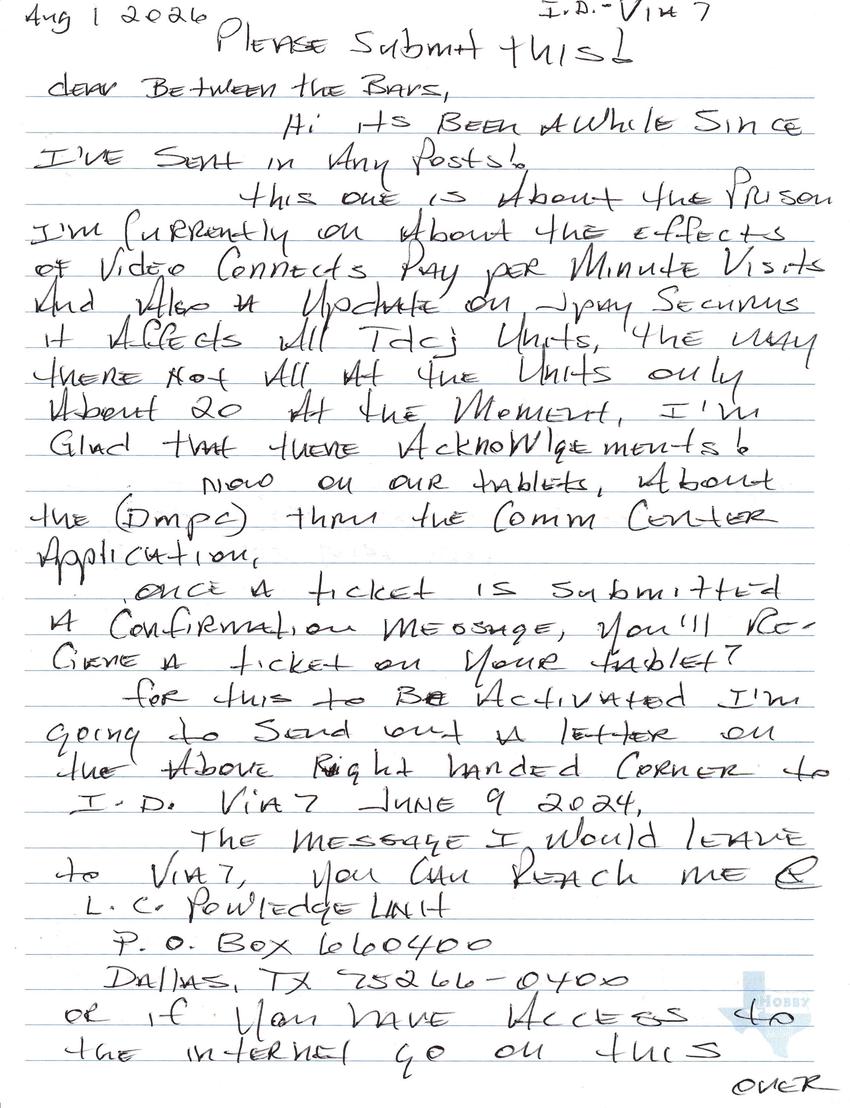 Aug 1 2026 I.D.-Via 7
Please Submit this!
dear Between the Bars,
Hi its Been Awhile Since
I've Sent in Any Posts!
this one is About the Prison
I'm Currently on About the effects
of Video Connects Pay per Minute Visits
And Also A Update on Jpay Securus
it Affects All Tdcj Units, the way
there Not All At the Units only
About 20 At the Moment, I'm
Glad that there Acknowlgements!
Now on our tablets, About
the (Dmpc) thru the Comm Center
Application,
once A ticket is submitted
A Confirmation Message, you'll Re-
Cieve A ticket on your tablet?
for this to Be Activated I'm
going to Send out A letter on
the Above Right handed Corner to
I.D. Via 7 June 9 2024,
The Message I would leave
to Via 7, you Can Reach me @
L.C. Powledge Unit
P.O. Box 660400
Dallas, TX 75266-0400
or if you have Access to
the internet go on this
over
HOBBY